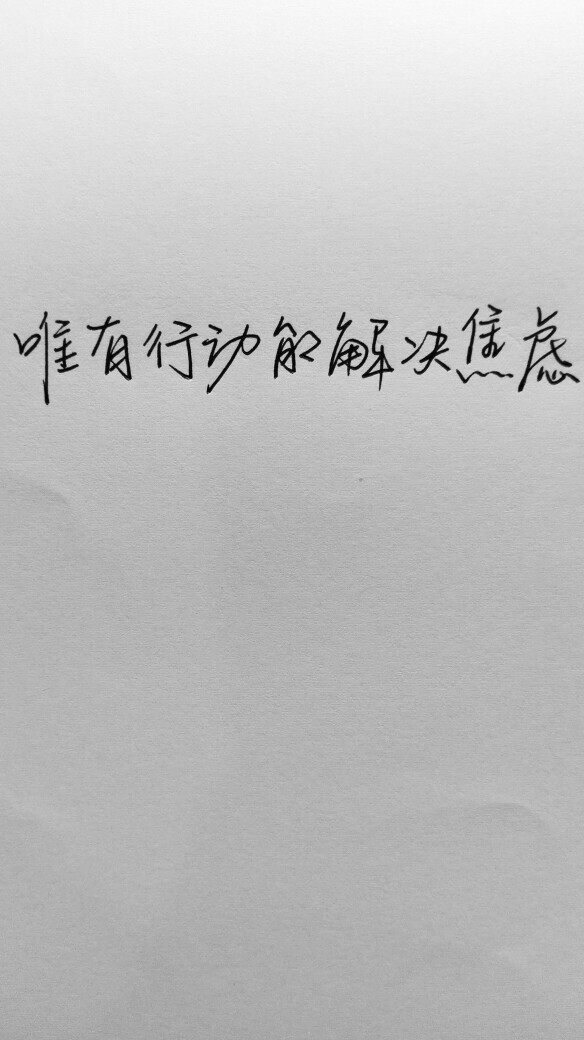 唯有行动能解决焦虑